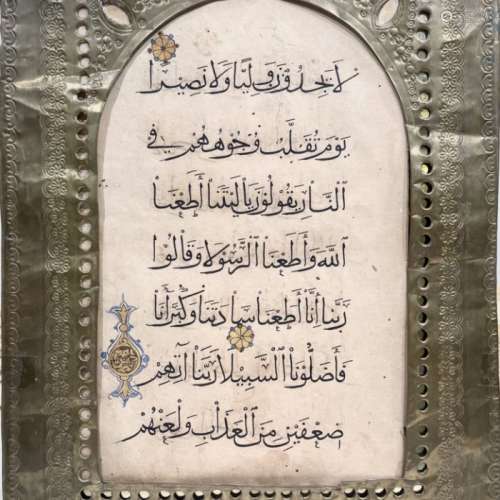 لَا يَجِدُونَ وَلِيًّا وَلَا نَصِيرًا
يَوْمَ تُقَلَّبُ وُجُوهُهُمْ فِي
النَّارِ يَقُولُونَ يَا لَيْتَنَا أَطَعْنَا
اللَّهَ وَأَطَعْنَا الرَّسُولَا وَقَالُوا
رَبَّنَا إِنَّا أَطَعْنَا سَادَتَنَا وَكُبَرَاءَنَا
فَأَضَلُّونَا السَّبِيلَا رَبَّنَا آتِهِمْ
ضِعْفَيْنِ مِنَ الْعَذَابِ وَالْعَنْهُمْ